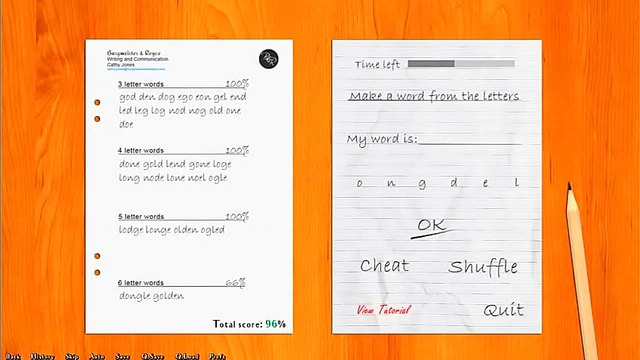 Burgmeister & Royce
Writing and Communication
Cathy Jones
3 letter words 100%
god den dog ego eon gel end
led leg log nod nog old one
doe
4 letter words 100%
done gold lend gone loge
long node lone noel ogle
5 letter words 100%
lodge longe olden ogled
6 letter words 66%
dongle golden
Total score: 96%
Time left
Make a word from the letters
My word is:
o n g d e l
OK
Cheat Shuffle
View Tutorial Quit
Back History Skip Auto Save Q.Save Q.Load Prefs